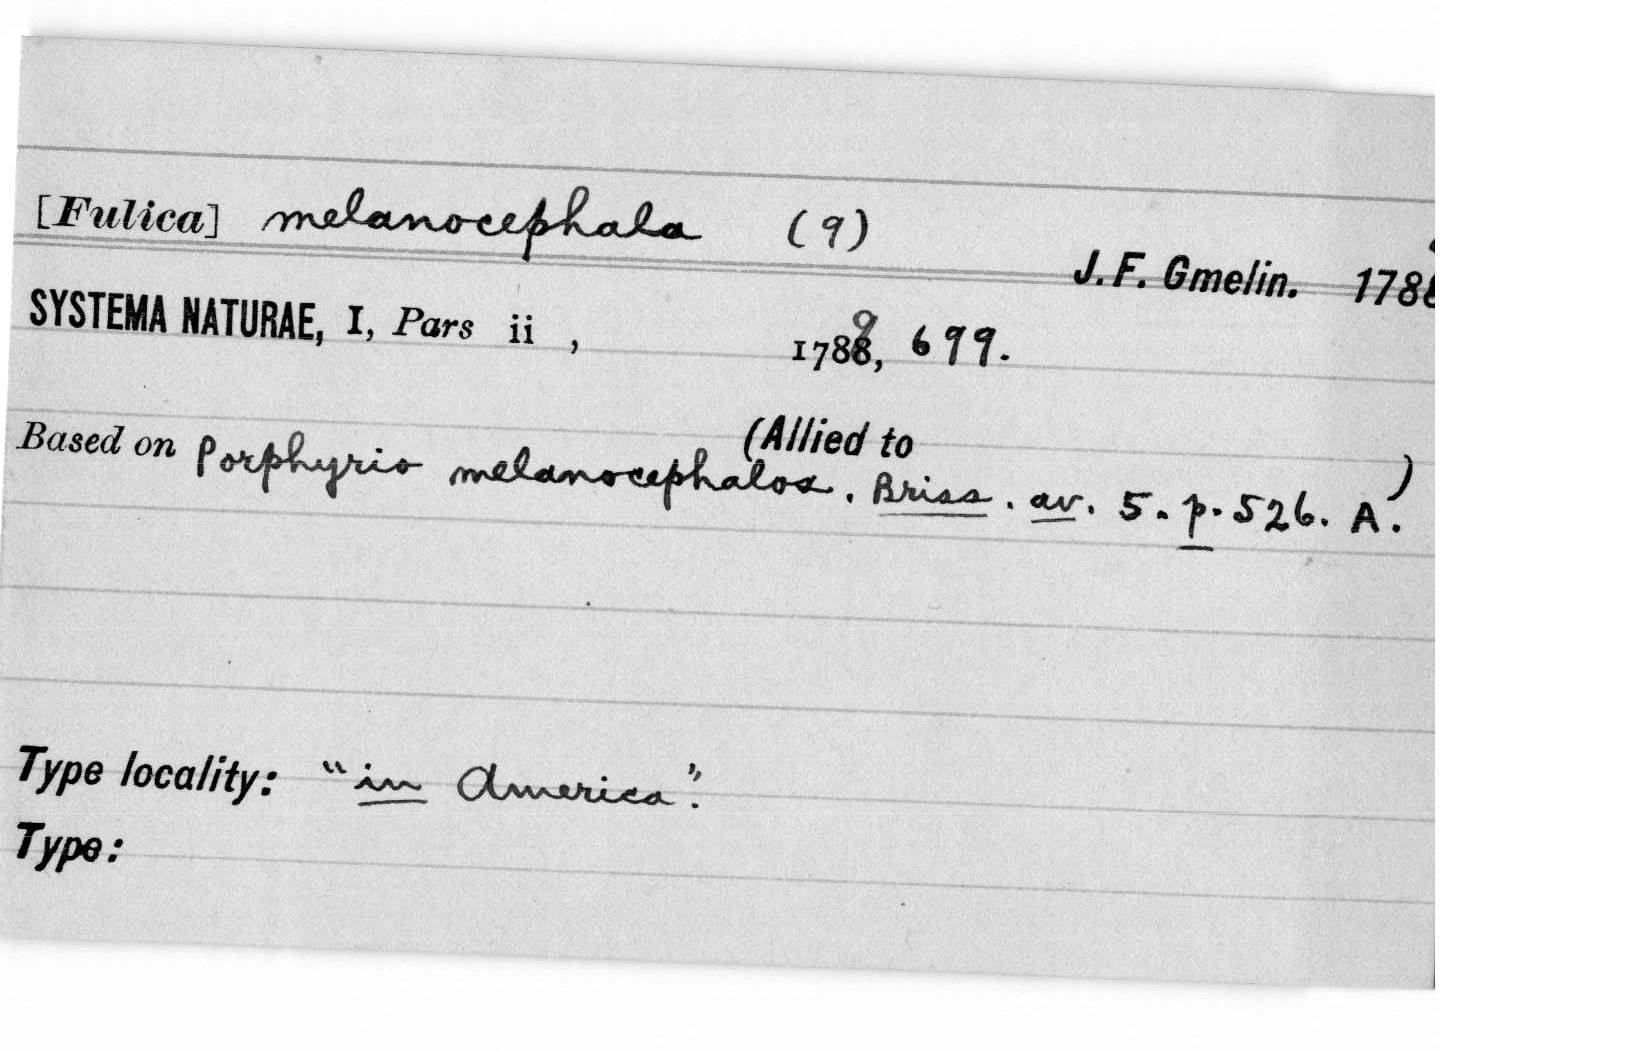 [Fulica] melanocephala (9)
J. F. Gmelin. 1788
SYSTEMA NATURAE, I, Pars ii , 1788, 699.
9
(Allied to )
Based on Porphyrio melanocephalos. Briss. av. 5. p. 526. A.
Type locality: "in America".
Type: